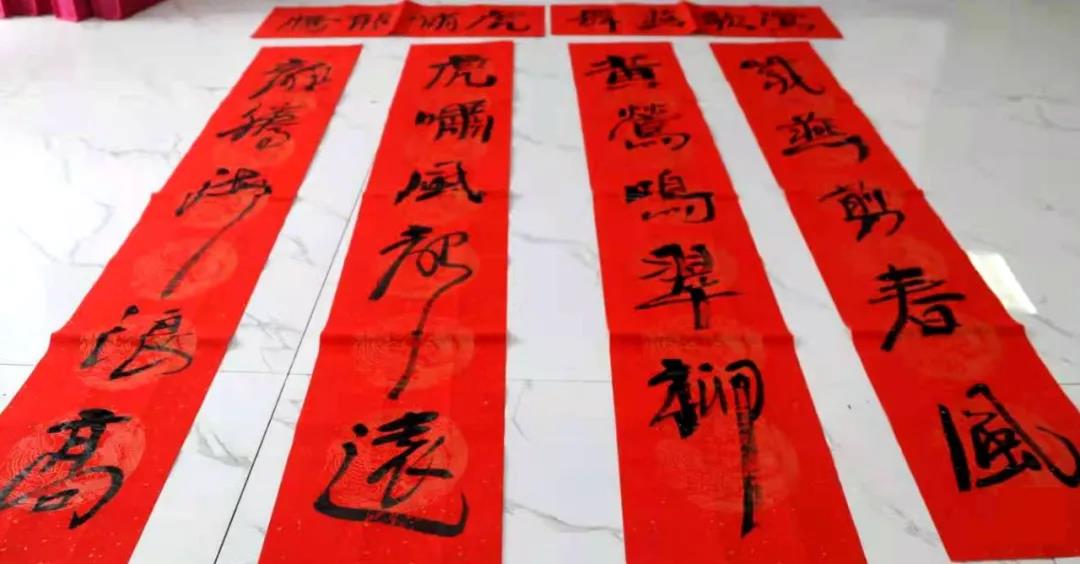 鶯歌燕舞
虎嘯龍騰
紫燕剪春風
黃鶯鳴翠柳
虎嘯風聲遠
龍騰海浪高